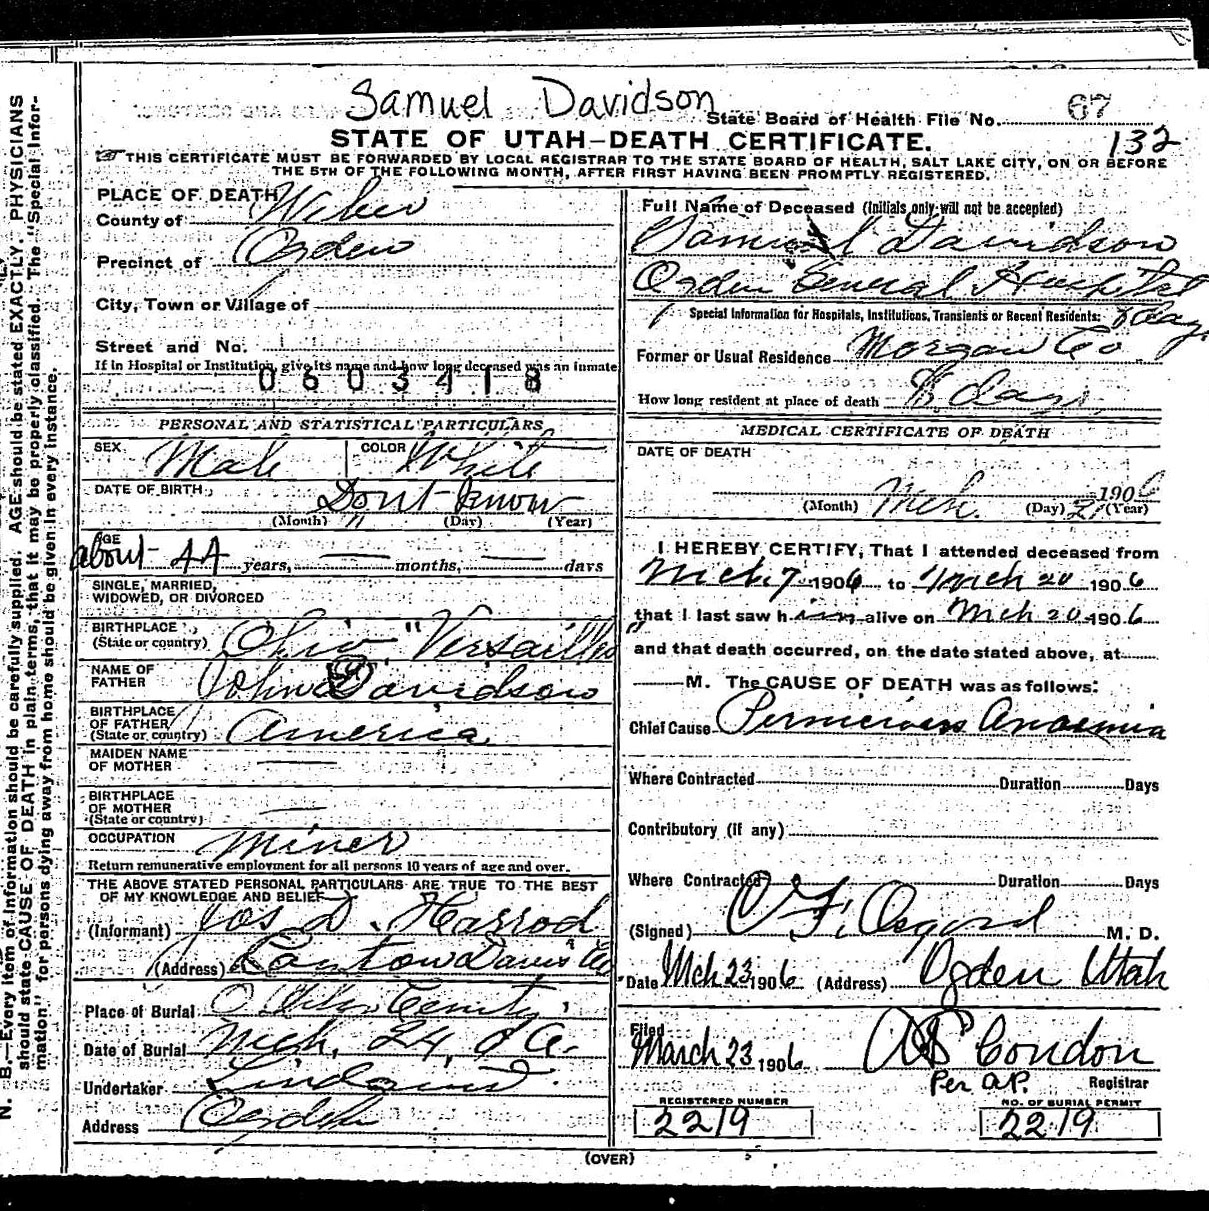 Samuel Davidson
State Board of Health File No. 67
132
STATE OF UTAH—DEATH CERTIFICATE.
THIS CERTIFICATE MUST BE FORWARDED BY LOCAL REGISTRAR TO THE STATE BOARD OF HEALTH, SALT LAKE CITY, ON OR BEFORE
THE 5TH OF THE FOLLOWING MONTH, AFTER FIRST HAVING BEEN PROMPTLY REGISTERED.
N. B.—Every item of information should be carefully supplied. AGE should be stated EXACTLY. PHYSICIANS
should state CAUSE OF DEATH in plain terms, that it may be properly classified. The "Special Infor-
mation" for persons dying away from home should be given in every instance.
PLACE OF DEATH
County of Weber
Precinct of Ogden
City, Town or Village of
Street and No.
If in Hospital or Institution, give its name and how long deceased was an inmate
0603418
PERSONAL AND STATISTICAL PARTICULARS
SEX Male COLOR White
DATE OF BIRTH Dont know
(Month) (Day) (Year)
AGE
about 44 years, months, days
SINGLE, MARRIED,
WIDOWED, OR DIVORCED
BIRTHPLACE
(State or country) Ohio "Versailles"
NAME OF
FATHER John Davidson
BIRTHPLACE
OF FATHER
(State or country) America
MAIDEN NAME
OF MOTHER
BIRTHPLACE
OF MOTHER
(State or country)
OCCUPATION Miner
Return remunerative employment for all persons 10 years of age and over.
THE ABOVE STATED PERSONAL PARTICULARS ARE TRUE TO THE BEST
OF MY KNOWLEDGE AND BELIEF
(Informant) Jos D. Harrod
(Address) Davis Co
Place of Burial
Date of Burial Mch. 24,
Undertaker Lindquist
Address Ogden
Full Name of Deceased (Initials only will not be accepted)
Samuel Davidson
Ogden General Hospital
Special Information for Hospitals, Institutions, Transients or Recent Residents: days
Former or Usual Residence Morgan Co
How long resident at place of death days
MEDICAL CERTIFICATE OF DEATH
DATE OF DEATH
1906
(Month) Mch. (Day) 21 (Year)
I HEREBY CERTIFY, That I attended deceased from
Mch. 7 1906 to Mch 20 1906
that I last saw him alive on Mch 20 1906
and that death occurred, on the date stated above, at
M. The CAUSE OF DEATH was as follows:
Chief Cause Pernicious Anaemia
Where Contracted Duration Days
Contributory (if any)
Where Contracted Duration Days
(Signed) C F. Osgood M. D.
Date Mch 23 1906 (Address) Ogden Utah
Filed
March 23 1906 Condon
Per A.P. Registrar
REGISTERED NUMBER NO. OF BURIAL PERMIT
2219 2219
(OVER)